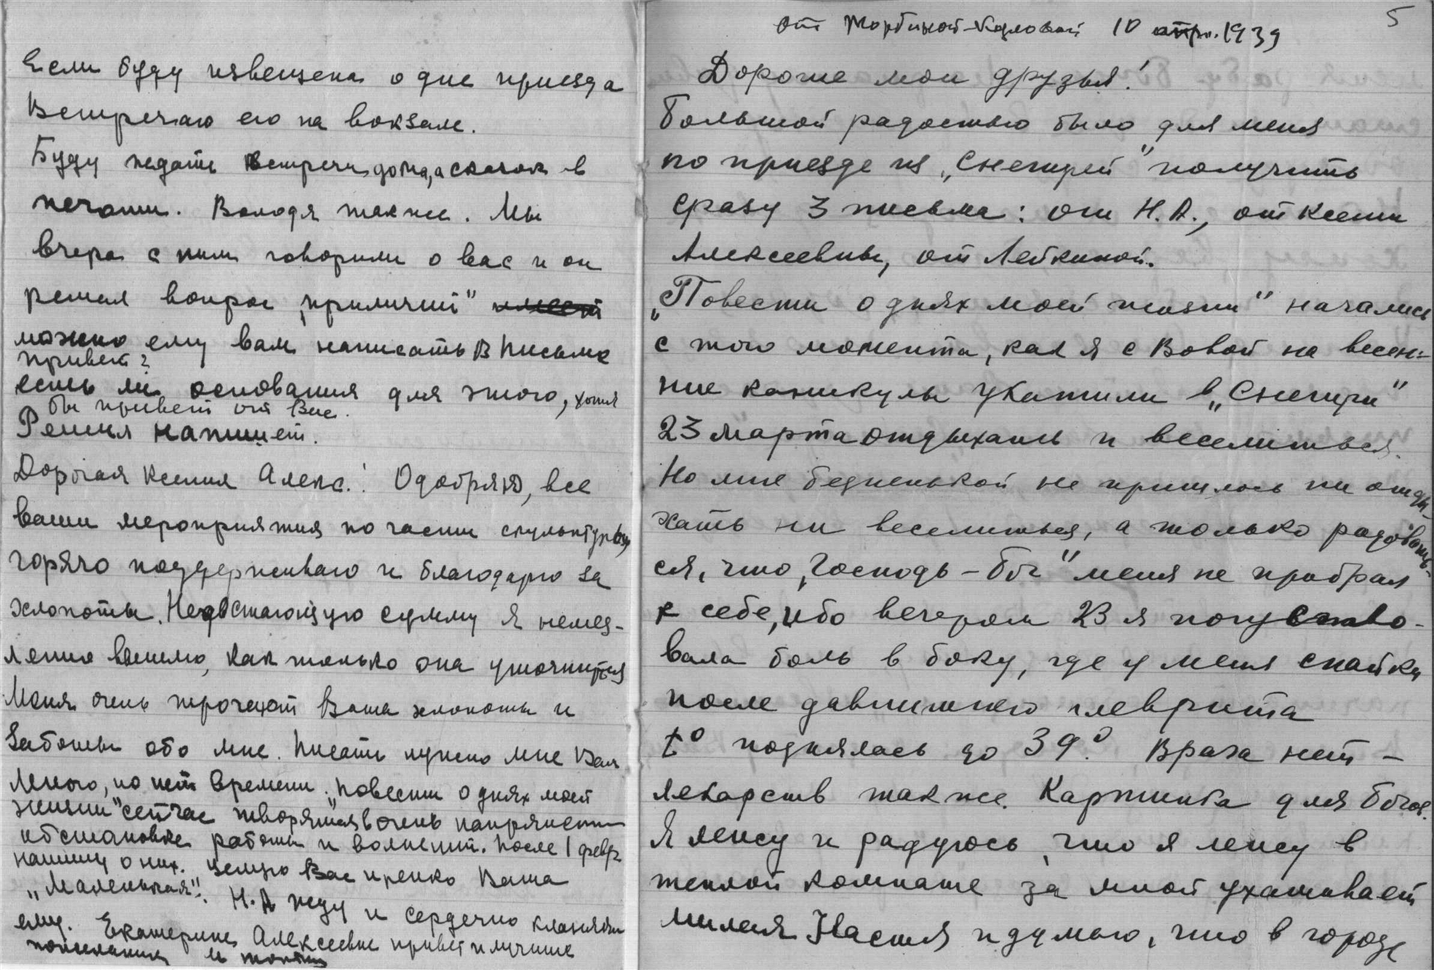 Если буду извещена о дне приезда
Встречаю его на вокзале.
Буду ждать встречи дома, а сначала в
печали. Володя также. Мы
вчера с ним говорили о вас и он
решал вопрос „приличий"
можно ему вам написать в письме
привет?
есть ли основания для этого, хотя
бы привет от Вас.
Решил напишет.
Дорогая Ксения Алекс.! Одобряю, все
ваши мероприятия по части скульптуры,
горячо поддерживаю и благодарю за
хлопоты. Недостающую сумму я немед-
ленно вышлю, как только она уточнится
Меня очень трогают Ваши хлопоты и
Заботы обо мне. Писать нужно мне Вам
много, но нет времени. „Повести о днях моей
жизни" сейчас творятся в очень напряжен
обстановке работы и волнений. После 1 февр.
напишу о них. Целую Вас крепко Ваша
„Маленькая". Н.А жду и сердечно кланяюсь
ему. Екатерине Алексеевне привет и лучшие
пожелания
5
от 10 апр. 1939
Дорогие мои друзья!
Большой радостью было для меня
по приезде из „Снегирей" получить
сразу 3 письма: от Н.А., от Ксении
Алексеевны, от Лебкиной.
„Повести о днях моей жизни" начались
с того момента, как я с Вовой на весен-
ние каникулы укатили в „Снегири"
23 марта отдыхать и веселиться.
Но мне бедненькой не пришлось ни отды-
хать ни веселиться, а только радовать-
ся, что „Господь – Бог" меня не прибрал
к себе, ибо вечером 23 я почувство-
вала боль в боку, где у меня спайки
после давнишнего плеврита
t° поднялась до 39°. Врача нет –
лекарств также. Картинка для богов.
Я лежу и радуюсь, что я лежу в
теплой комнате за мной ухаживает
милая Настя и думаю, что в городе